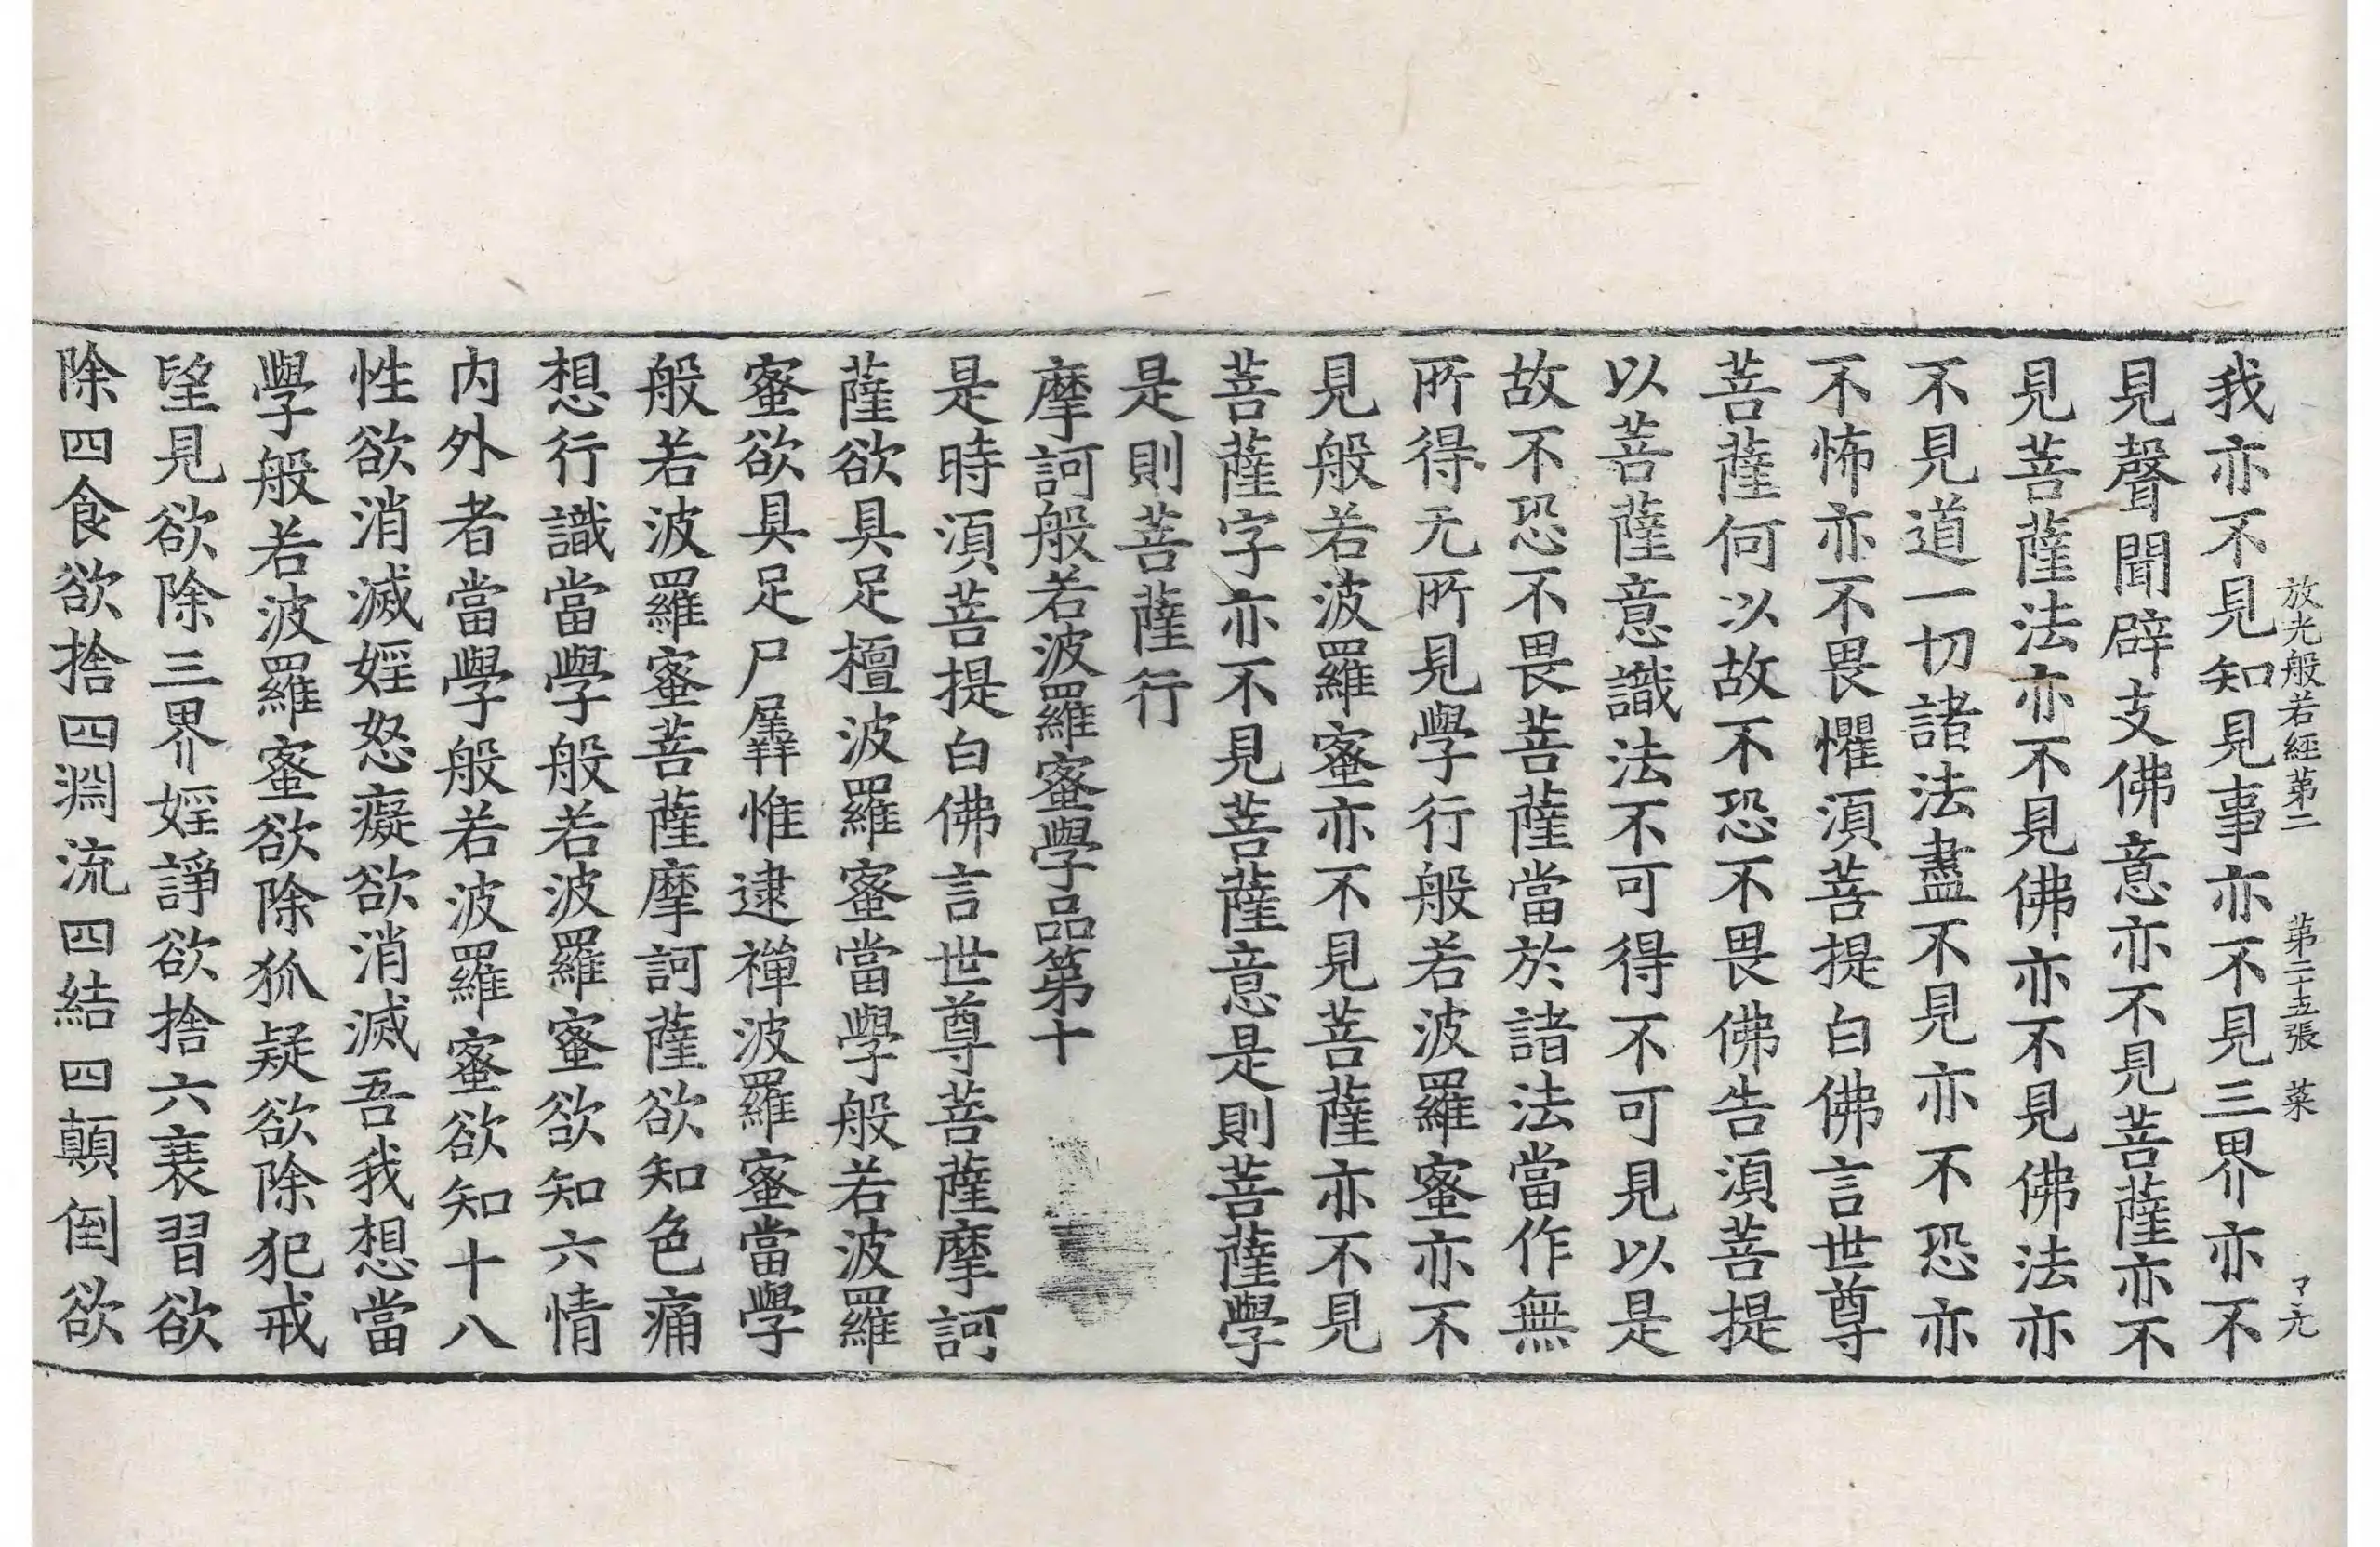 放光般若經第二 第二十五張 菜 マ元
我亦不見知見事亦不見三界亦不
見聲聞辟支佛意亦不見菩薩亦不
見菩薩法亦不見佛亦不見佛法亦
不見道一切諸法盡不見亦不恐亦
不怖亦不畏懼湏菩提白佛言世尊
菩薩何以故不恐不畏佛告湏菩提
以菩薩意識法不可得不可見以是
故不恐不畏菩薩當於諸法當作無
所得无所見學行般若波羅蜜亦不
見般若波羅蜜亦不見菩薩亦不見
菩薩字亦不見菩薩意是則菩薩學
是則菩薩行
摩訶般若波羅蜜學品第十
是時湏菩提白佛言世尊菩薩摩訶
薩欲具足檀波羅蜜當學般若波羅
蜜欲具足尸羼惟逮禪波羅蜜當學
般若波羅蜜菩薩摩訶薩欲知色痛
想行識當學般若波羅蜜欲知六情
内外者當學般若波羅蜜欲知十八
性欲消滅婬怒癡欲消滅吾我想當
學般若波羅蜜欲除狐疑欲除犯戒
望見欲除三界婬諍欲捨六衰習欲
除四食欲捨四淵流四結四顛倒欲